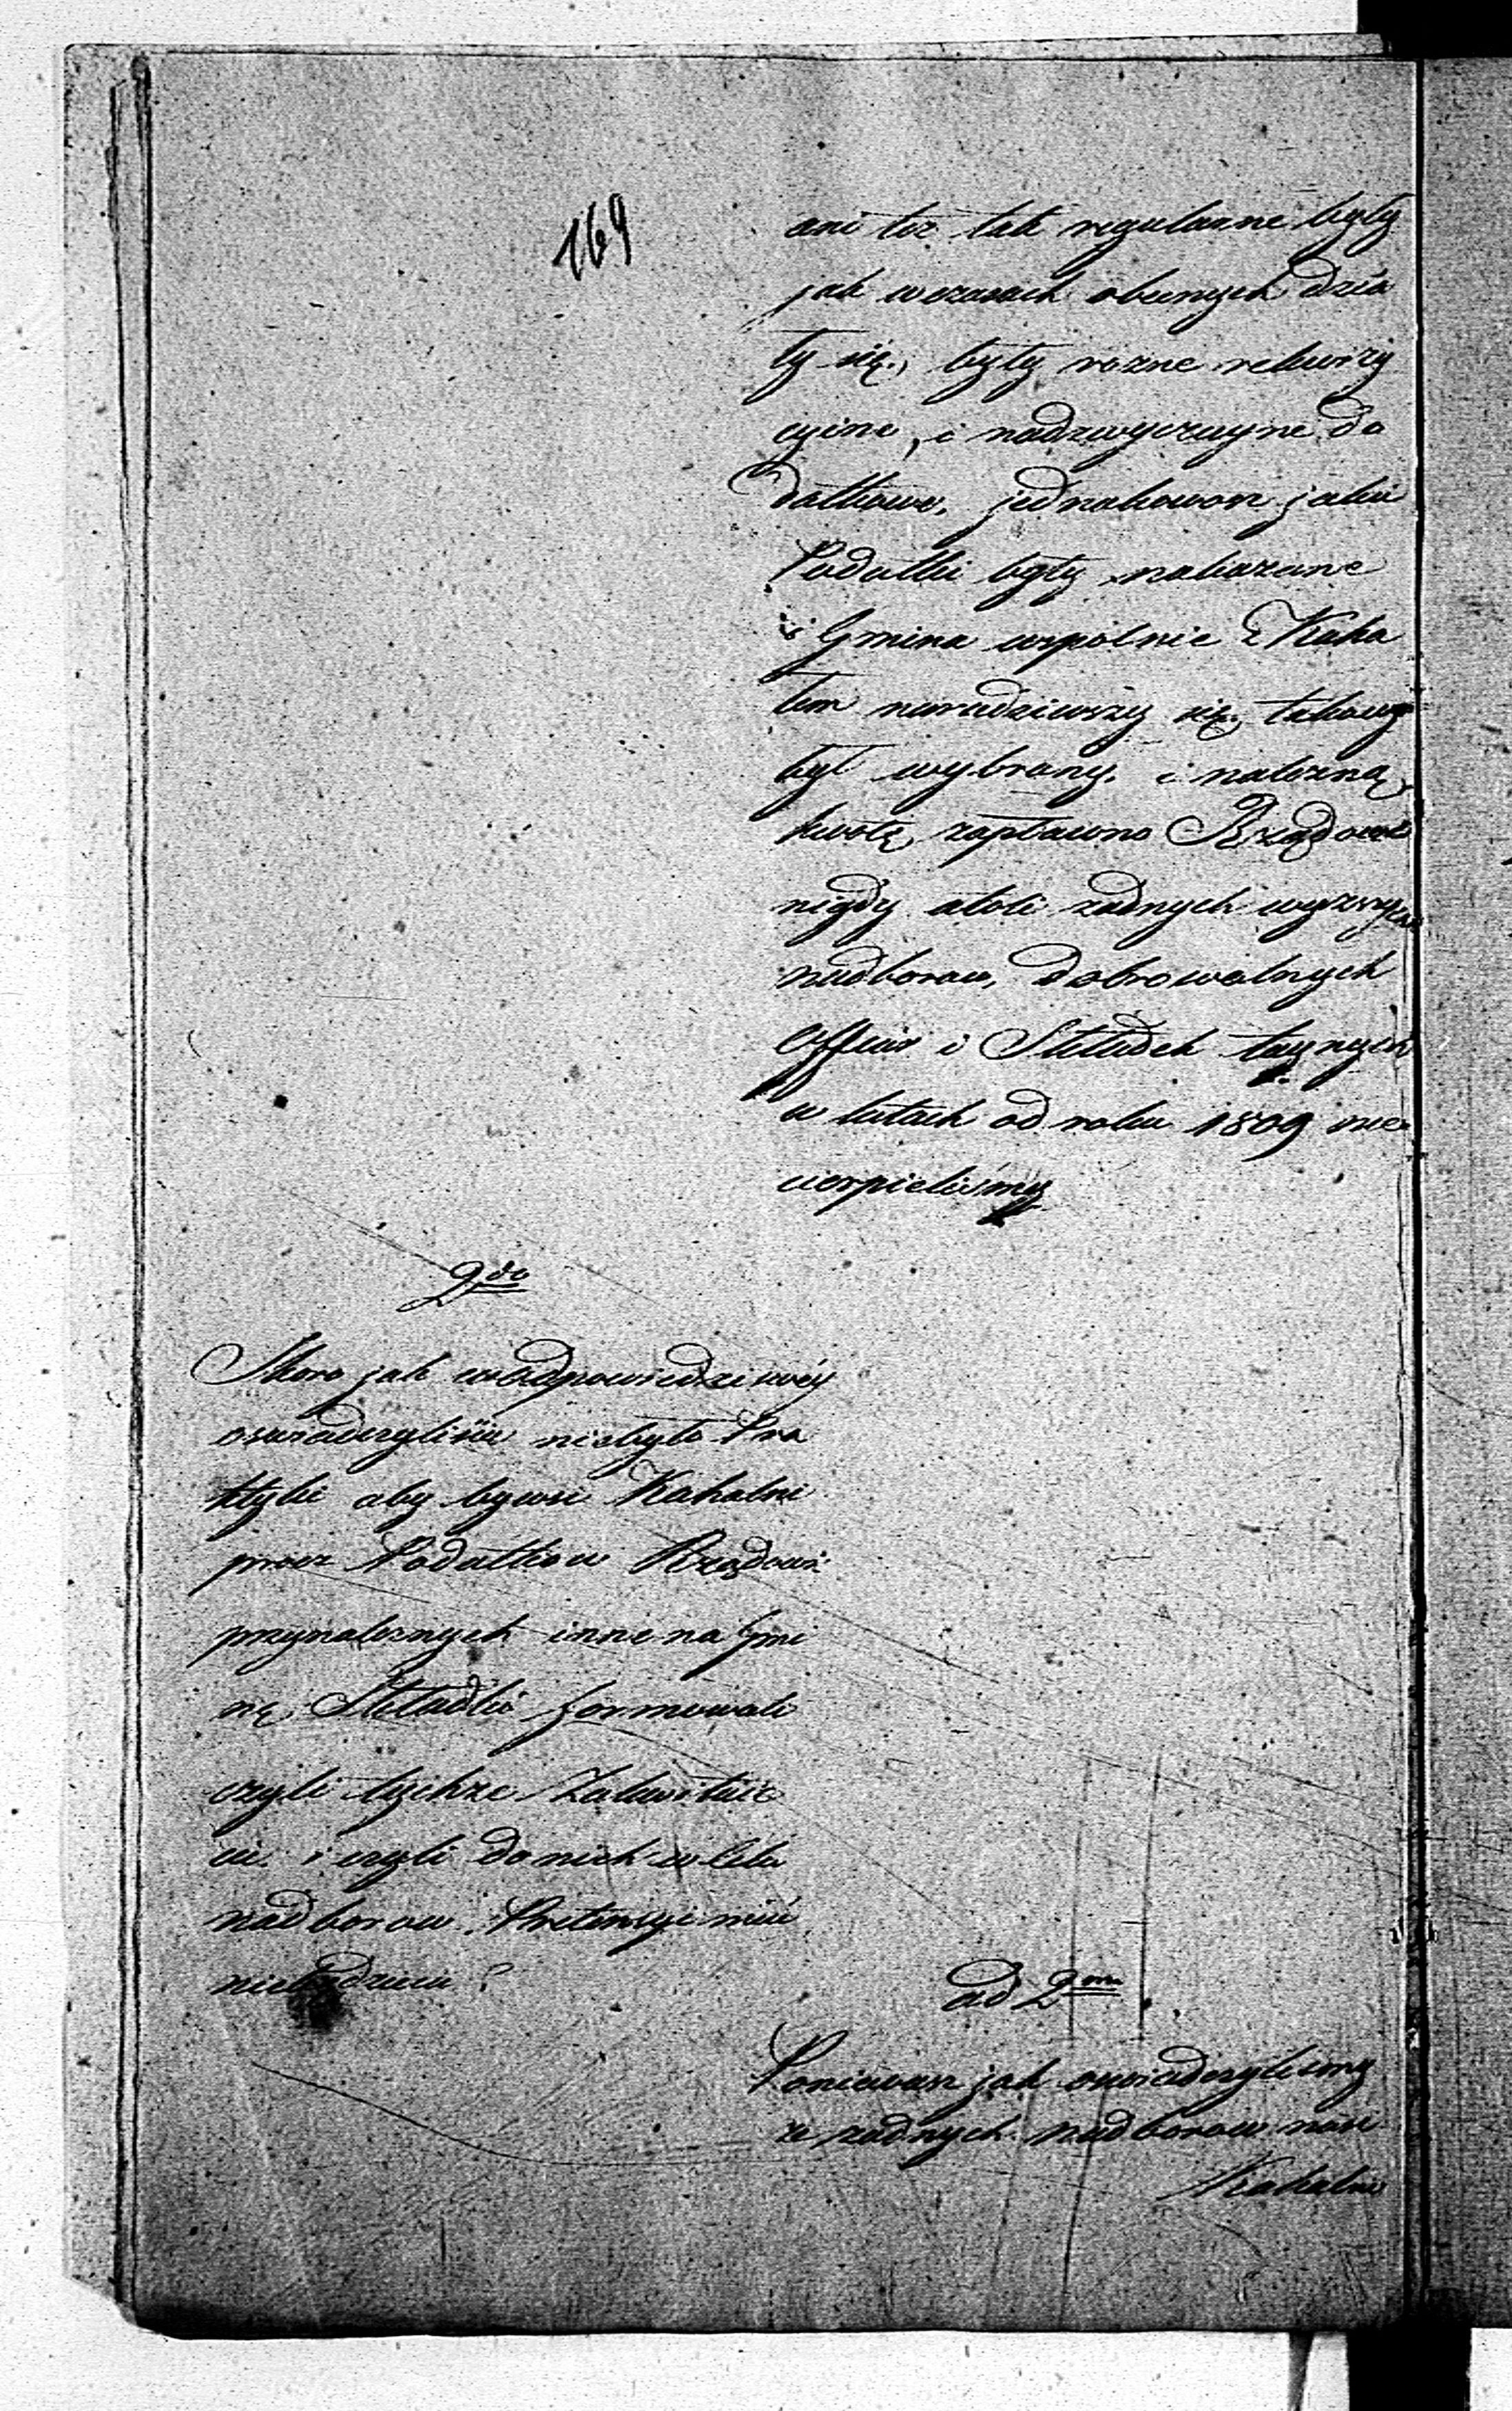 169
ani też tak regularne były
jak w czasach obecnych dzia
ły się, były rozne rekwizy
cyine, i nadzwyczayne do
datkowe, jednakowoż jakie
Podatki były nakazane
i Gmina wspolnie z Kaha
łem naradziwszy się, takowy
był wybrany, i nalezną
kwotę zapłacono Rządowi
nigdy atoli zadnych wyzszych
nadborow, dobrowolnych
Offiar i Składek taynych
w latach od roku 1809 nie
cierpieliśmy
2do
Skoro jak w odpowiedzi swéy
oswiadczyliście niebyło Pra
ktyki aby bywsi Kahalni
procz Podatkow Rządowi
przynaleznych inne na Gmi
nę Składki formowali
czyli tychże kwituie
cie i czyli do nich w celu
nadborow Pretensyi mieć
niebędziecie?
ad 2um
Poniewaz jak oswiadczylismy
ze zadnych nadborow nasi
Kahalni